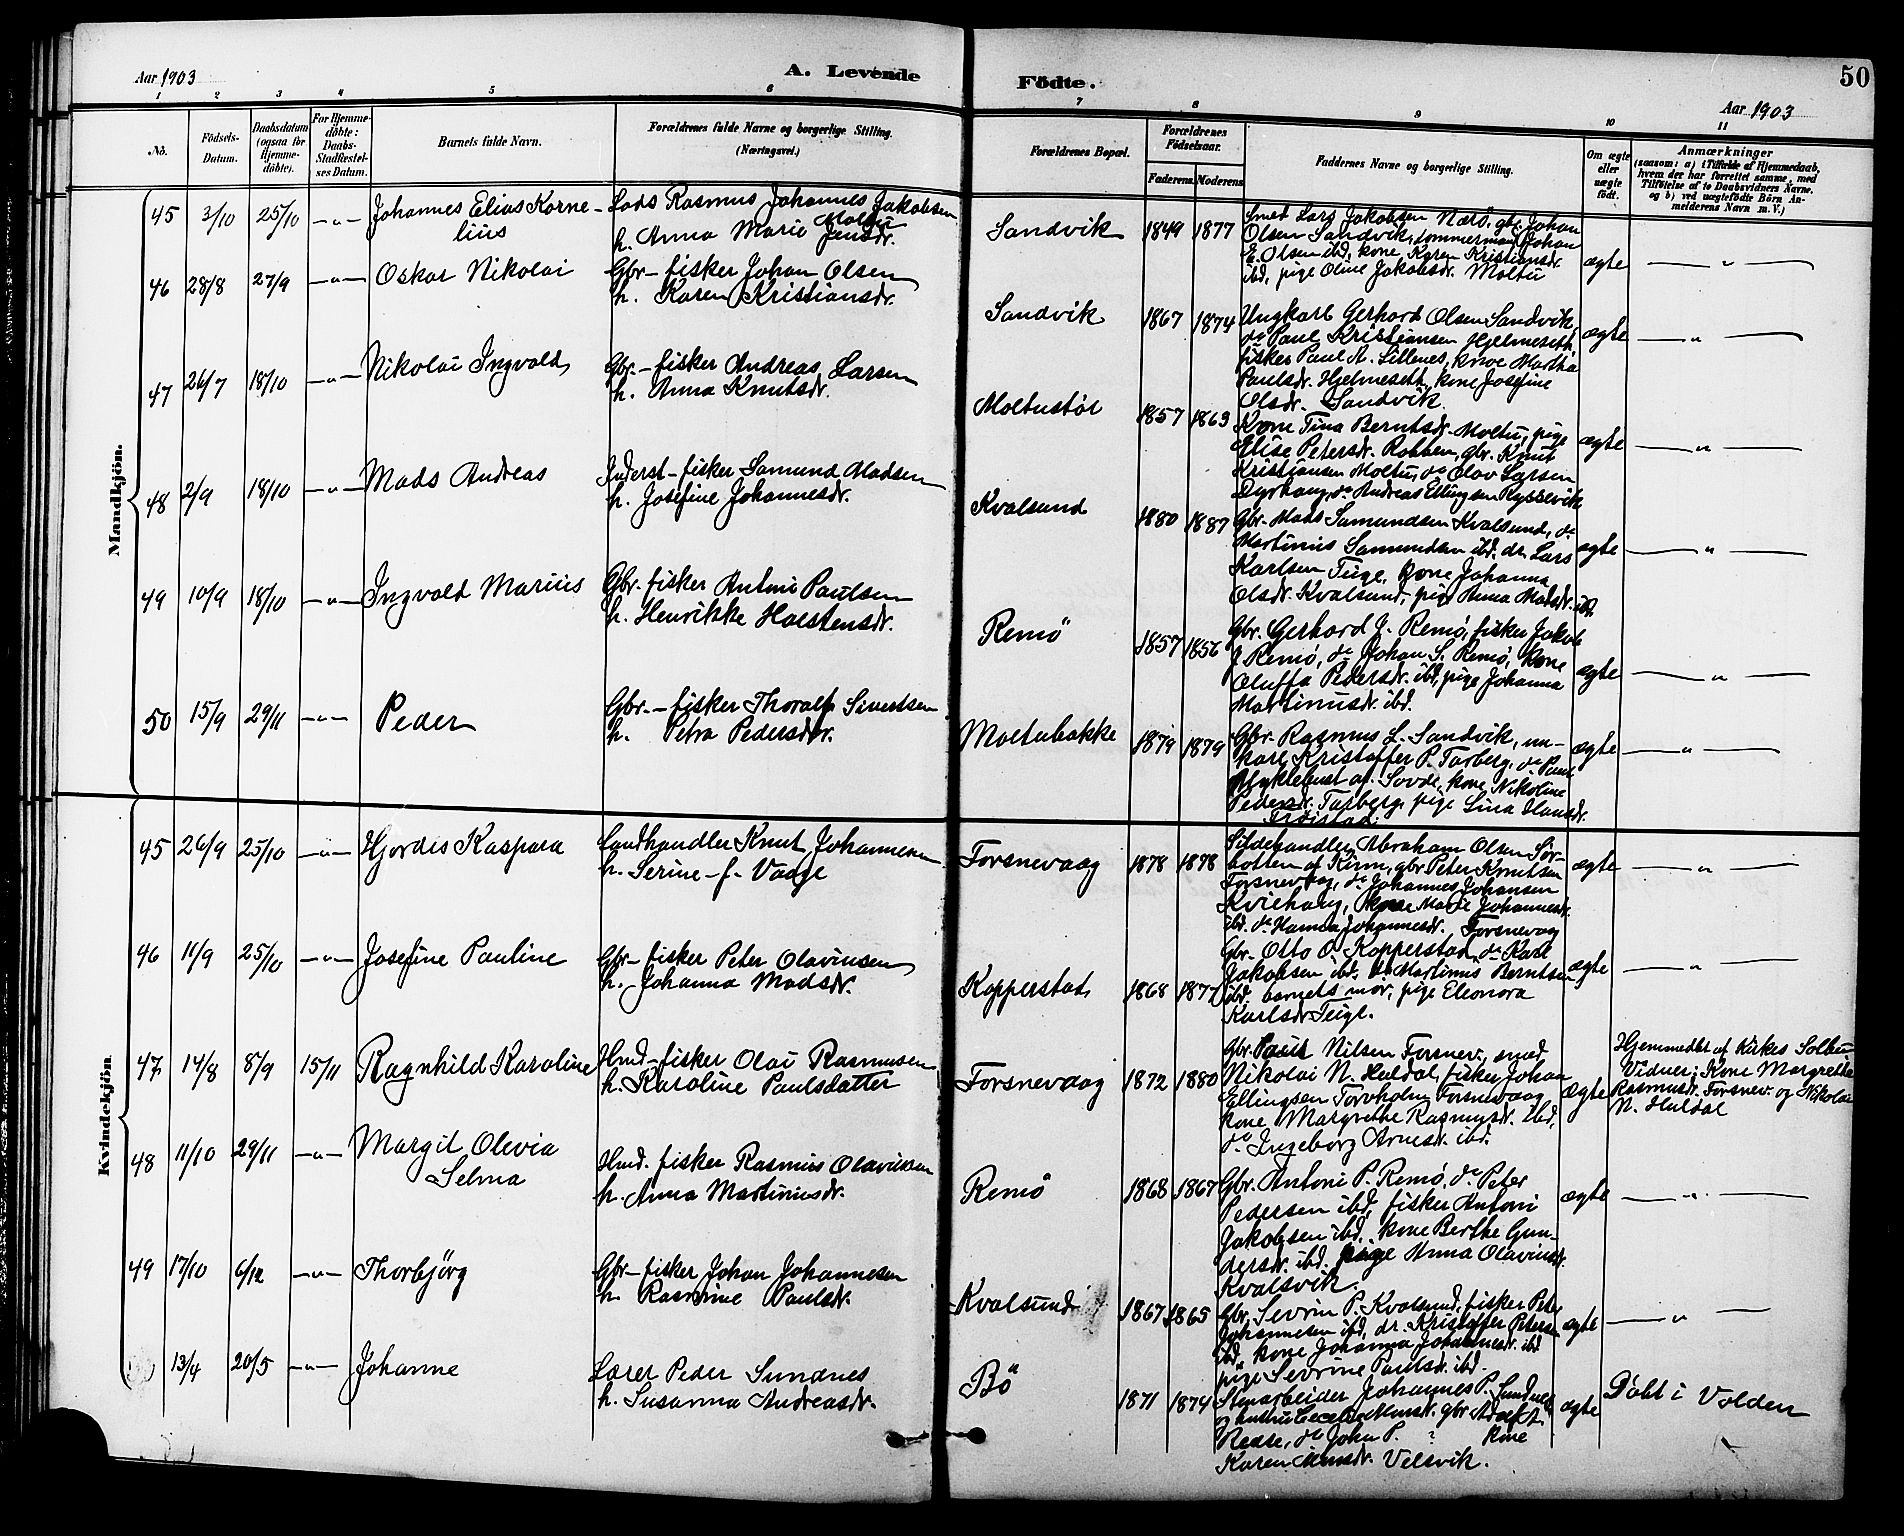 Aar 1903
A. Levende
Födte.
50
Aar 1903
1 2 3 4 5 6 7 8 9 10 11
No.
Födsels-Datum.
Daabsdatum (ogsaa for Hjemme-döbte).
For Hjemme-döbte: Daabs-Stadfæstel-ses Datum.
Barnets fulde Navn.
Forældrenes fulde Navne og borgerlige Stilling. (Næringsvei.)
Forældrenes Bopæl.
Forældrenes Födselsaar.
Faderens Moderens
Faddernes Navne og borgerlige Stilling.
Om ægte eller uægte födt.
Anmærkninger
(saasom: a) i Tilfælde af Hjemmedaab,
hvem der har forrettet samme, med
Tilföielse af to Daabsvidners Navne.
og b) ved uægtefödte Börn An-
melderens Navn m. V.)
Mandkjön.
45 3/10 25/10 -"- Johannes Elias Korne-
lius
Lods Rasmus Johannes Jakobsen
Moltu
h. Anna Marie Jensdr.
Sandvik 1849 1877
Smed Lars Jakobsen Nærö, gbr. Johan
Olsen Sandvik, tømmermand Johan
E. Olsen ibd, kone Karen Kristiansdr.
ibd, pige Oline Jakobsdr. Moltu
ægte — " —
46 28/8 27/9 -"- Oskar Nikolai
Gbr-fisker Johan Olsen
h. Karen Kristiansdr.
Sandvik 1867 1874
Ungkarl Gerhard Olsen Sandvik,
do Paul Kristiansen Hjelmeseth,
fisker Paul A. Lillenes, kone Martha
Paulsdr. Hjelmeseth, kone Josefine
Olsdr. Sandvik.
ægte — " —
47 26/7 18/10 -"- Nikolai Ingvald
Gbr-fisker Andreas Larsen
h. Anna Knutsdr.
Moltustöl 1857 1863
Kone Tina Berntsdr. Moltu, pige
Elise Petersdr. Robben, gbr. Knut
Kristiansen Moltu, do Olav Larsen
Dyrhaug, do Andreas Ellingsen Kyssevik
ægte — " —
48 2/9 18/10 -"- Mads Andreas
Inderst-fisker Samund Madsen
h. Josefine Johannesdr.
Kvalsund 1880 1887
Gbr. Mads Samundsen Kvalsund, do
Martinus Samundsen ibd. dr. Lars
Karlsen Teige, kone Johanna
Olsdr. Kvalsund, pige Anna Madsdr. ibd.
ægte — " —
49 10/9 18/10 -"- Ingvald Marius
Gbr-fisker Antoni Paulsen
h. Henrikke Holstensdr.
Remö 1857 1856
Gbr. Gerhard J. Remö, fisker Jakob
J Remö, do Johan S. Remö, kone
Oluffa Pedersdr. ibd, pige Johanna
Martinusdr. ibd.
ægte — " —
50 15/9 29/11 -"- Peder
Gbr.-fisker Thoralf Sivertsen
h. Petra Pedersdtr.
Moltubakke 1879 1879
Gbr. Rasmus L. Sandvik, un-
karl Kristoffer P. Tarberg, do Paul
Myklebust af Sovde, kone Nikoline
Pedersdr. Tarberg, pige Lina Hansdr.
Fröistad.
ægte — " —
Kvindekjön
45 26/9 25/10 -"- Hjordis Kaspara
Landhandler Knut Johannesen
h. Serine f. Vaage
Torsnevaag 1878 1878
Sildehandler Abraham Olsen Sör-
botten af Kinn, gbr Peter Knutsen
Torsnevaag, do Johannes Johansen
Kviehaug, kone Marie Johannesdr.
ibd. do Hanna Johannesdr. Torsnevaag
ægte — " —
46 11/9 25/10 -"- Josefine Pauline
Gbr-fisker Peter Olavinsen
h. Johanna Madsdr.
Kopperstad 1868 1877
Gbr. Otto O. Kopperstad, do Karl
Jakobsen ibd. do Martinus Berntsen
ibd. barnets mor, pige Eleonora
Karlsdr Teige.
ægte — " —
47 14/8 8/9 15/11 Ragnhild Karoline
Hmd-fisker Olai Rasmussen
h. Karoline Paulsdatter
Torsnevaag 1872 1880
Gbr. Paul Nilsen Torsnev., smed
Nikolai N. Huldal, fisker Johan
Ellingsen Torvholm Torsnevaag
kone Margrethe Rasmusdr. ibd,
do Ingeborg Arnesdr. ibd.
ægte
Hjemmedøbt af Kirkes.
Vidner: Kone Margrethe
Rasmusdr. Torsnev. og Nikolai
N. Huldal
48 11/10 29/11 -"- Margit Olivia
Selma
Hmd. fisker Rasmus Olavinsen
h. Anna Martinusdr.
Remö 1868 1867
Gbr. Antoni P. Remö, do Peter
Pedersen ibd, fisker Antoni
Jakobsen ibd., kone Berthe Gun-
dersdr. ibd. pige Anna Olavinsdr
Kvalsvik.
ægte — " —
49 17/10 6/12 -"- Thorbjörg
Gbr-fisker Johan Johannesen
h. Rasmine Paulsdr.
Kvalsund 1867 1865
Gbr. Sevrin P. Kvalsund, fisker Peter
Johannesen ibd, dr. Kristoffer Petersen
ibd, kone Johanna Johannesdr. ibd
pige Sevrine Paulsdr. ibd.
ægte — " —
13/4 20/5 -"- Johanne
Lærer Peder Sundnes
h. Susanna Andreasdr.
Bö 1871 1874
Stenarbeider Johannes P. Sundnes
og hustru gbr. Adolf A.
do John P. ? kone
Karen Velsvik.
ægte
Döbt i Volden